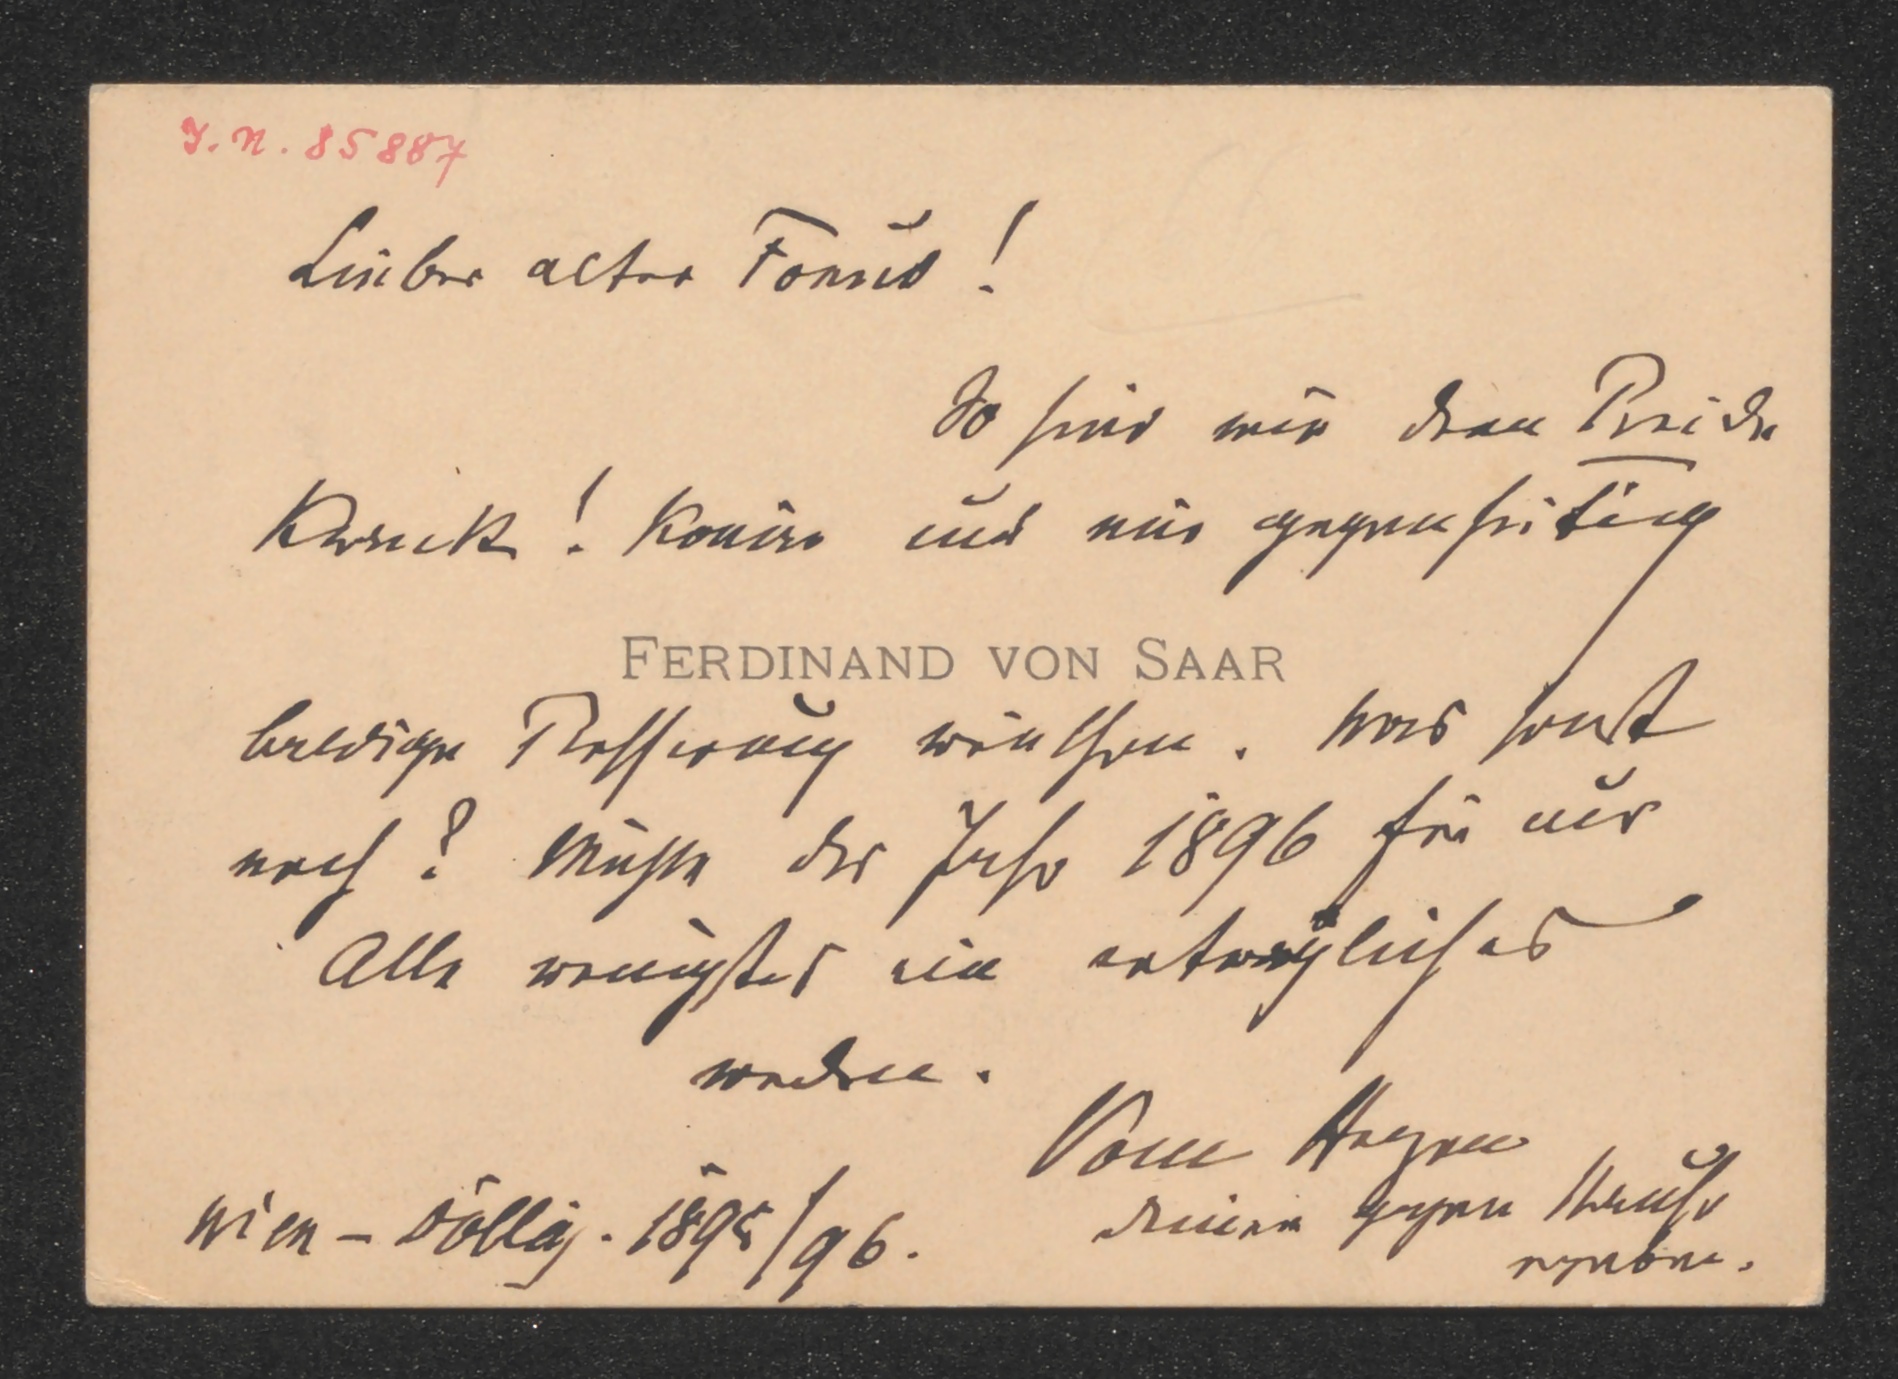 I. N. 85887
Lieber alter Freund!
So sind wir denn Beide
krank! Können uns nur gegenseitig
FERDINAND VON SAAR
baldige Besserung wünschen. Was sonst
noch? Möge das Jahr 1896 für uns
Alle wenigstens ein erträgliches
werden.
Vom Herzen
deiner ganzen
ergebener.
Wien – Döbling. 1895/96.